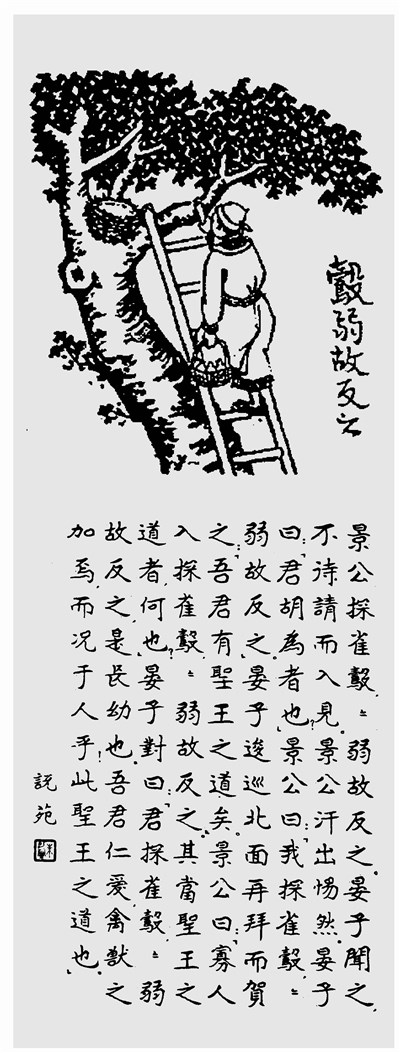 鷇弱故反之
景公探雀鷇,〻弱故反之。晏子聞之,
不待請而入見。景公汗出惕然。晏子
曰:「君胡為者也?」景公曰:「我探雀鷇,〻
弱故反之。」晏子逡巡北面再拜而賀
之:「吾君有聖王之道矣。」景公曰:「寡人
入探雀鷇,〻弱故反之,其當聖王之
道者何也?」晏子對曰:「君探雀鷇,〻弱
故反之,是長幼也。吾君仁愛禽獸之
加焉,而況于人乎!此聖王之道也。」
說苑